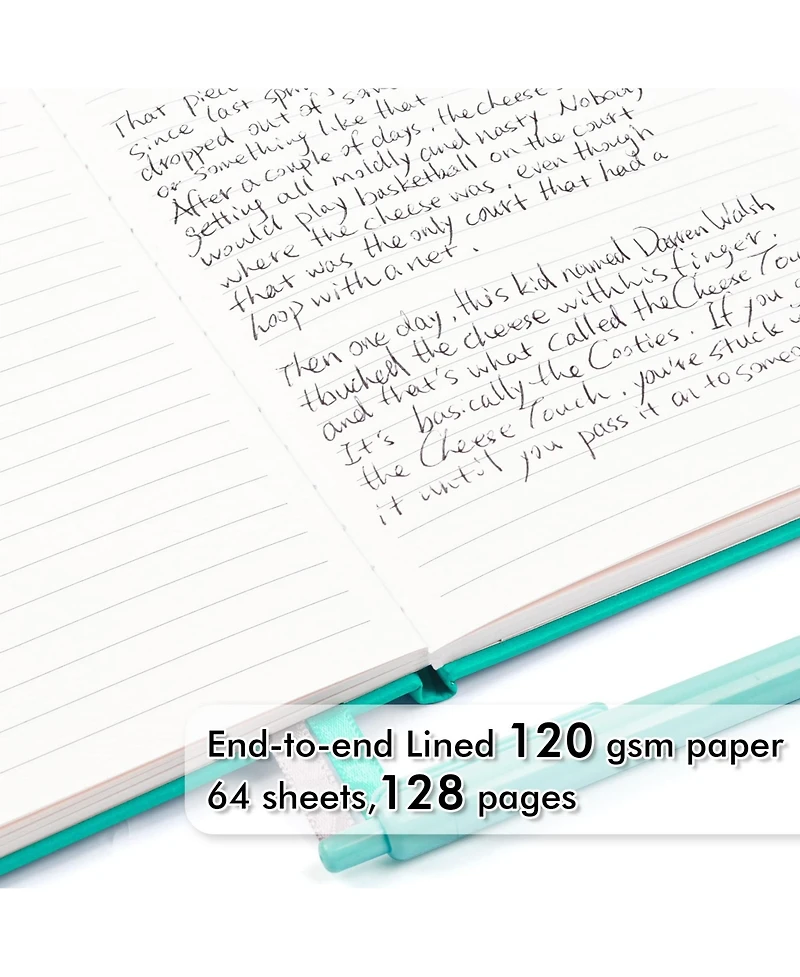 That piec
since last spri
dropped out of som
or something like that
After a couple of days, the cheese
getting all moldly and nasty. Nobody
would play basketball on the court
where the cheese was, even though
that was the only court that had a
hoop with a net.
Then one day, this kid named Darren Walsh
thuched the cheese with his finger.
and that's what called the Cheese Tou
It's basically the Cooties. If you g
the Cheese Touch, you're stuck w
it until you pass it on to someo
End-to-end Lined 120 gsm paper
64 sheets,128 pages